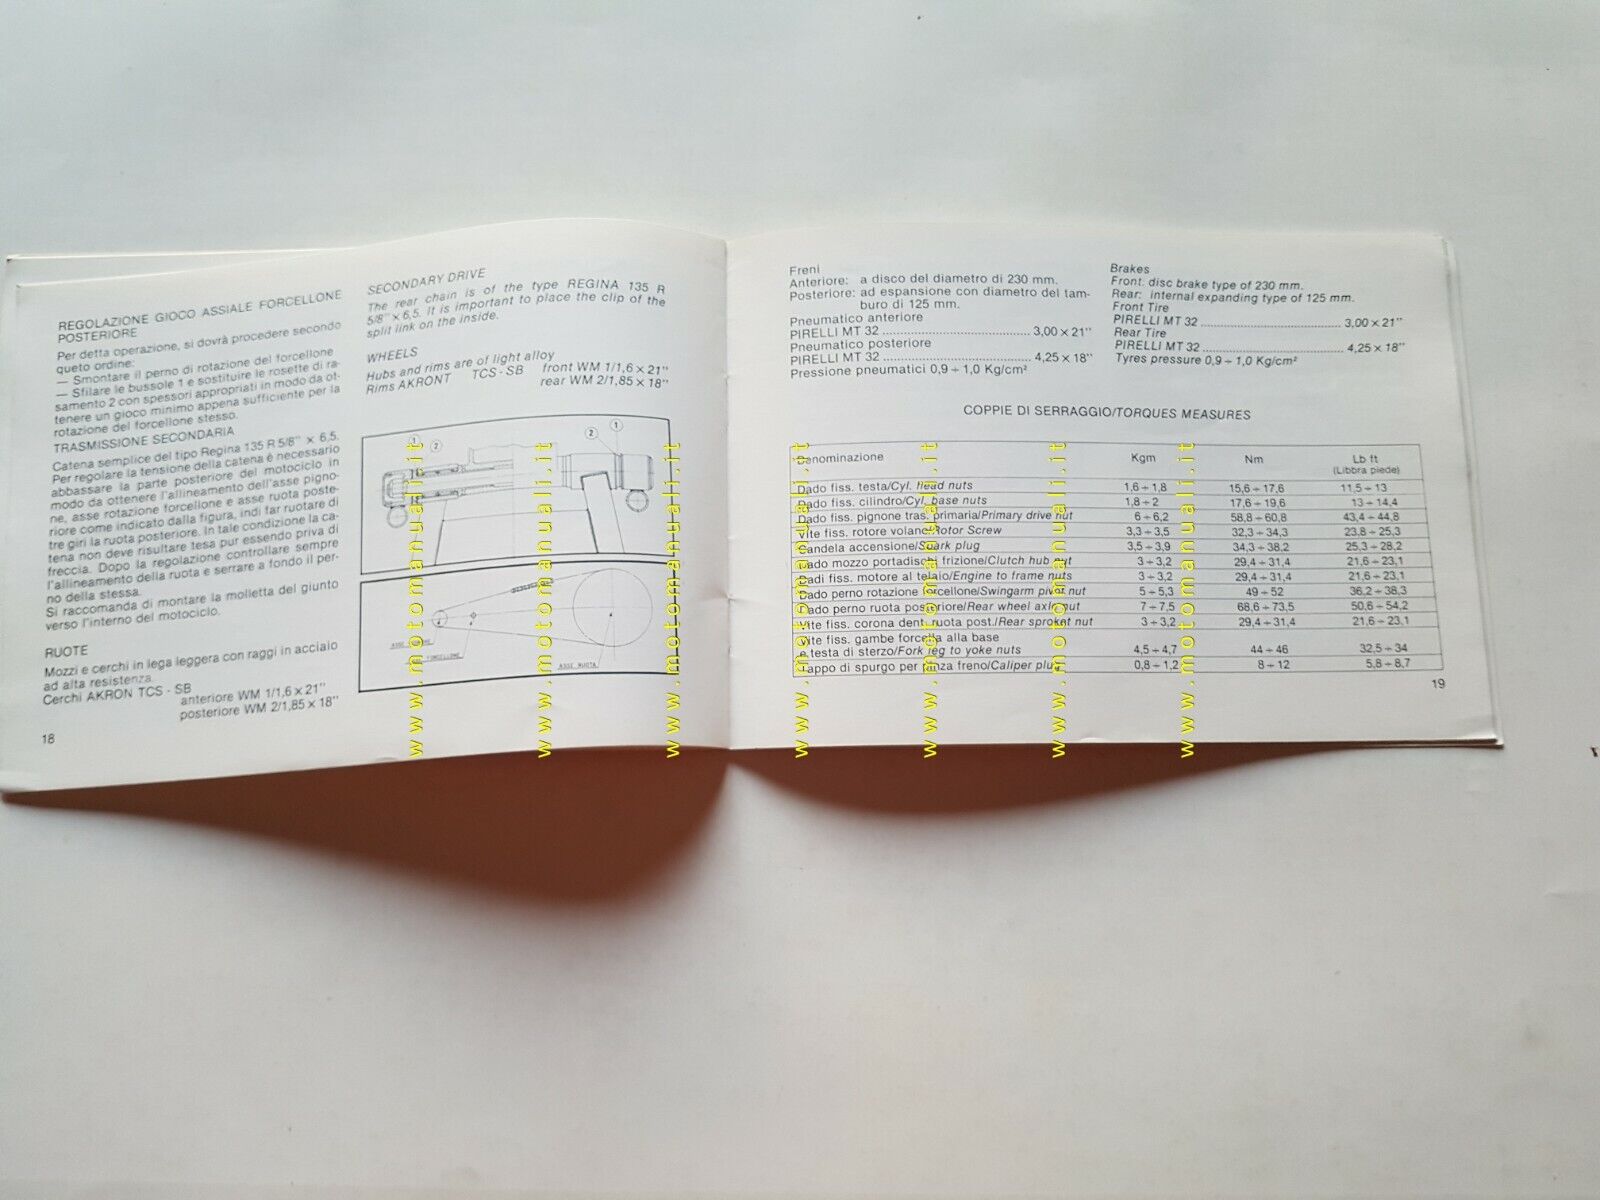 REGOLAZIONE GIOCO ASSIALE FORCELLONE
POSTERIORE
Per detta operazione, si dovrà procedere secondo
queto ordine:
— Smontare il perno di rotazione del forcellone
— Sfilare le bussole 1 e sostituire le rosette di ra-
samento 2 con spessori appropriati in modo da ot-
tenere un gioco minimo appena sufficiente per la
rotazione del forcellone stesso.
TRASMISSIONE SECONDARIA
Catena semplice del tipo Regina 135 R 5/8" × 6,5.
Per regolare la tensione della catena è necessario
abbassare la parte posteriore del motociclo in
modo da ottenere l'allineamento dell'asse pigno-
ne, asse rotazione forcellone e asse ruota poste-
riore come indicato dalla figura, indi far ruotare di
tre giri la ruota posteriore. In tale condizione la ca-
tena non deve risultare tesa pur essendo priva di
freccia. Dopo la regolazione controllare sempre
l'allineamento della ruota e serrare a fondo il per-
no della stessa.
Si raccomanda di montare la molletta del giunto
verso l'interno del motociclo.
RUOTE
Mozzi e cerchi in lega leggera con raggi in acciaio
ad alta resistenza.
Cerchi AKRON TCS - SB
anteriore WM 1/1,6 × 21"
posteriore WM 2/1,85 × 18"
18
SECONDARY DRIVE
The rear chain is of the type REGINA 135 R
5/8" × 6,5. It is important to place the clip of the
split link on the inside.
WHEELS
Hubs and rims are of light alloy
Rims AKRONT TCS - SB front WM 1/1,6 × 21"
rear WM 2/1,85 × 18"
1 2 2 1
ASSE RUOTA
Freni
Anteriore: a disco del diametro di 230 mm.
Posteriore: ad espansione con diametro del tam-
buro di 125 mm.
Pneumatico anteriore
PIRELLI MT 32 ........ 3,00 × 21"
Pneumatico posteriore
PIRELLI MT 32 ........ 4,25 × 18"
Pressione pneumatici 0,9 ÷ 1,0 Kg/cm²
Brakes
Front. disc brake type of 230 mm.
Rear: internal expanding type of 125 mm.
Front Tire
PIRELLI MT 32 ........ 3,00 × 21"
Rear Tire
PIRELLI MT 32 ........ 4,25 × 18"
Tyres pressure 0,9 ÷ 1,0 Kg/cm²
COPPIE DI SERRAGGIO/TORQUES MEASURES
Denominazione Kgm Nm Lb ft
(Libbra piede)
Dado fiss. testa/Cyl. head nuts 1,6 ÷ 1,8 15,6 ÷ 17,6 11,5 ÷ 13
Dado fiss. cilindro/Cyl. base nuts 1,8 ÷ 2 17,6 ÷ 19,6 13 ÷ 14,4
Dado fiss. pignone tras. primaria/Primary drive nut 6 ÷ 6,2 58,8 ÷ 60,8 43,4 ÷ 44,8
Vite fiss. rotore volano/Rotor Screw 3,3 ÷ 3,5 32,3 ÷ 34,3 23,8 ÷ 25,3
Candela accensione/Spark plug 3,5 ÷ 3,9 34,3 ÷ 38,2 25,3 ÷ 28,2
Dado mozzo portadischi frizione/Clutch hub nut 3 ÷ 3,2 29,4 ÷ 31,4 21,6 ÷ 23,1
Dadi fiss. motore al telaio/Engine to frame nuts 3 ÷ 3,2 29,4 ÷ 31,4 21,6 ÷ 23,1
Dado perno rotazione forcellone/Swingarm pivot nut 5 ÷ 5,3 49 ÷ 52 36,2 ÷ 38,3
Dado perno ruota posteriore/Rear wheel axle nut 7 ÷ 7,5 68,6 ÷ 73,5 50,6 ÷ 54,2
Vite fiss. corona dent. ruota post./Rear sproket nut 3 ÷ 3,2 29,4 ÷ 31,4 21,6 ÷ 23,1
Vite fiss. gambe forcella alla base
e testa di sterzo/Fork leg to yoke nuts 4,5 ÷ 4,7 44 ÷ 46 32,5 ÷ 34
Tappo di spurgo per pinza freno/Caliper plug 0,8 ÷ 1,2 8 ÷ 12 5,8 ÷ 8,7
19
www.motomanuali.it
www.motomanuali.it
www.motomanuali.it
www.motomanuali.it
www.motomanuali.it
www.motomanuali.it
www.motomanuali.it